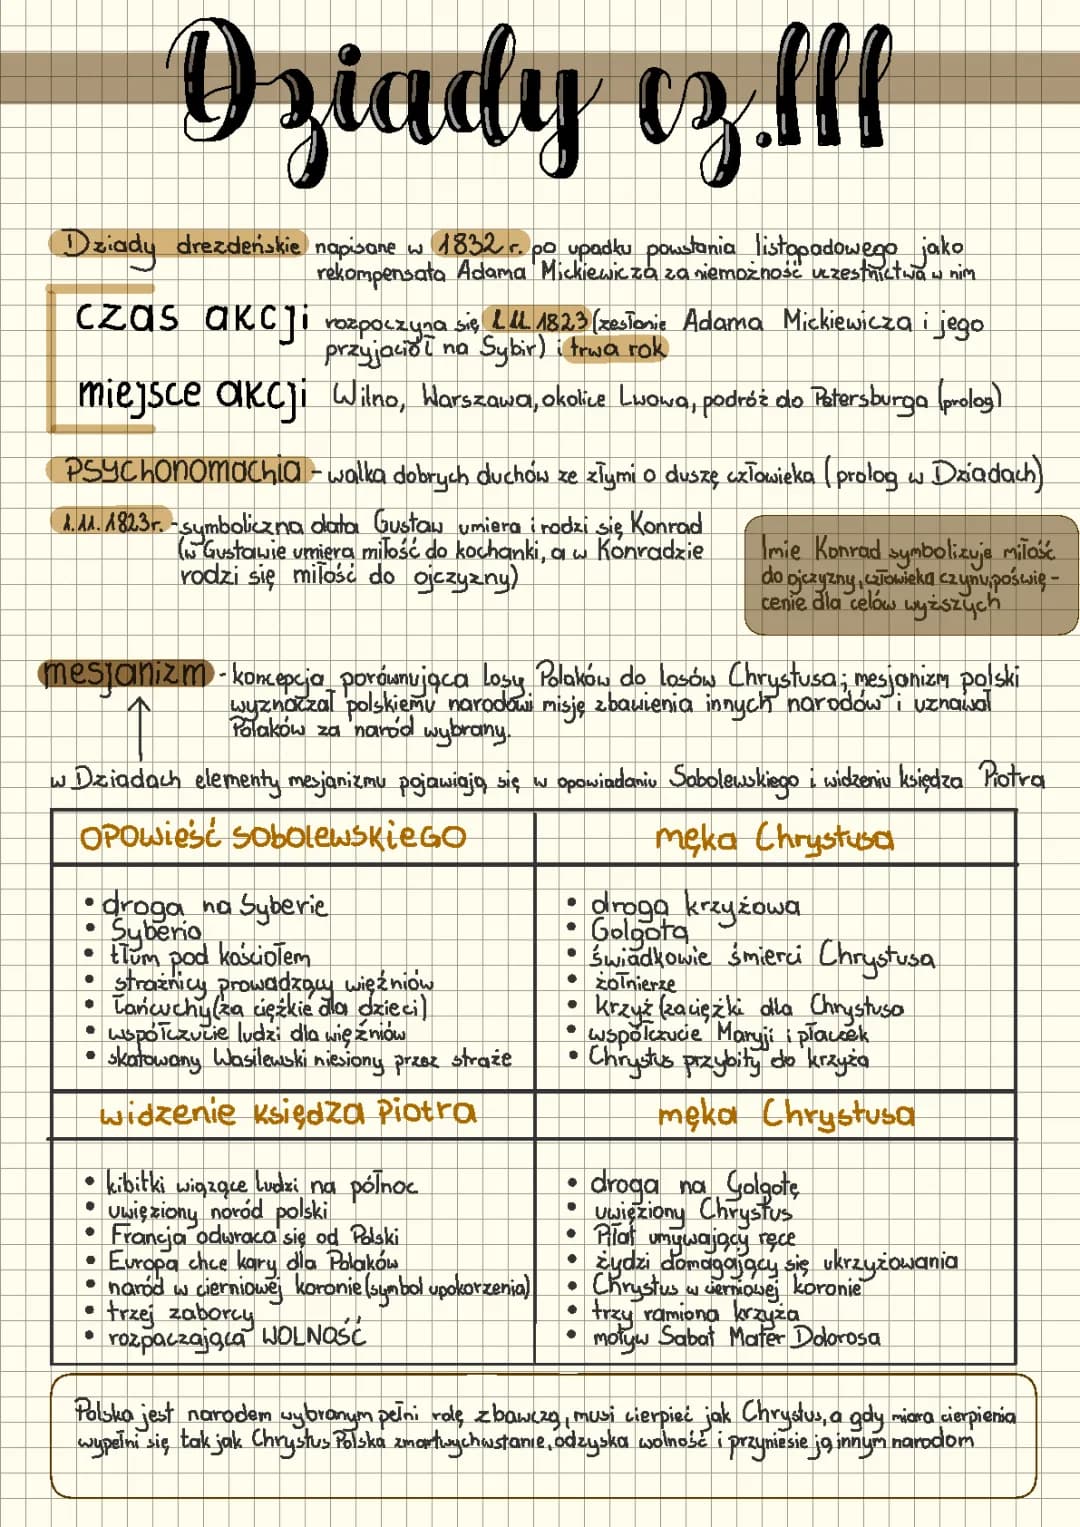 Dziady cz.III
Dziady drezdeńskie napisane w 1832 r. po upadku powstania listopadowego jako
rekompensata Adama Mickiewicza za niemożność uczestnictwa w nim
czas akcji rozpoczyna się 1.11.1823 (zesłanie Adama Mickiewicza i jego
przyjaciół na Sybir) i trwa rok
miejsce akcji Wilno, Warszawa, okolice Lwowa, podróż do Petersburga (prolog)
PSYChONOMAChIA - walka dobrych duchów ze złymi o duszę człowieka (prolog w Dziadach)
1.11.1823r. - symboliczna data Gustaw umiera i rodzi się Konrad
(w Gustawie umiera miłość do kochanki, a w Konradzie
rodzi się miłość do ojczyzny)
Imie Konrad symbolizuje miłość
do ojczyzny, człowieka czynu, poświę-
cenie dla celów wyższych
mesjanizm - koncepcja porównująca losy Polaków do losów Chrystusa; mesjanizm polski
wyznaczał polskiemu narodowi misję zbawienia innych narodów i uznawał
Polaków za naród wybrany.
w Dziadach elementy mesjanizmu pojawiają się w opowiadaniu Sobolewskiego i widzeniu księdza Piotra
OPOWieść SOBOLEWSKIEGO
męka Chrystusa
• droga na Syberie
• Syberia
• tłum pod kościołem
• strażnicy prowadzący więźniów
• Łańcuchy (za ciężkie dla dzieci)
• współczucie ludzi dla więźniów
• skatowany Wasilewski niesiony przez straże
• droga krzyżowa
• Golgota
• świadkowie śmierci Chrystusa
• żołnierze
• krzyż (za ciężki dla Chrystusa
• współczucie Maryji i płaczek
• Chrystus przybity do krzyża
widzenie księdza Piotra
męka Chrystusa
• kibitki wiążące ludzi na północ
• uwięziony naród polski
• Francja odwraca się od Polski
• Europa chce kary dla Polaków
• naród w cierniowej koronie (symbol upokorzenia)
• trzej zaborcy
• rozpaczająca WOLNOŚĆ
• droga na Golgotę
• uwięziony Chrystus
• Piłat umywający ręce
• żydzi domagający się ukrzyżowania
• Chrystus w cierniowej koronie
• trzy ramiona krzyża
• motyw Sabat Mater Dolorosa
Polska jest narodem wybranym pełni rolę zbawczą, musi cierpieć jak Chrystus, a gdy miara cierpienia
wypełni się, tak jak Chrystus Polska zmartwychwstanie, odzyska wolność i przyniesie ją innym narodom